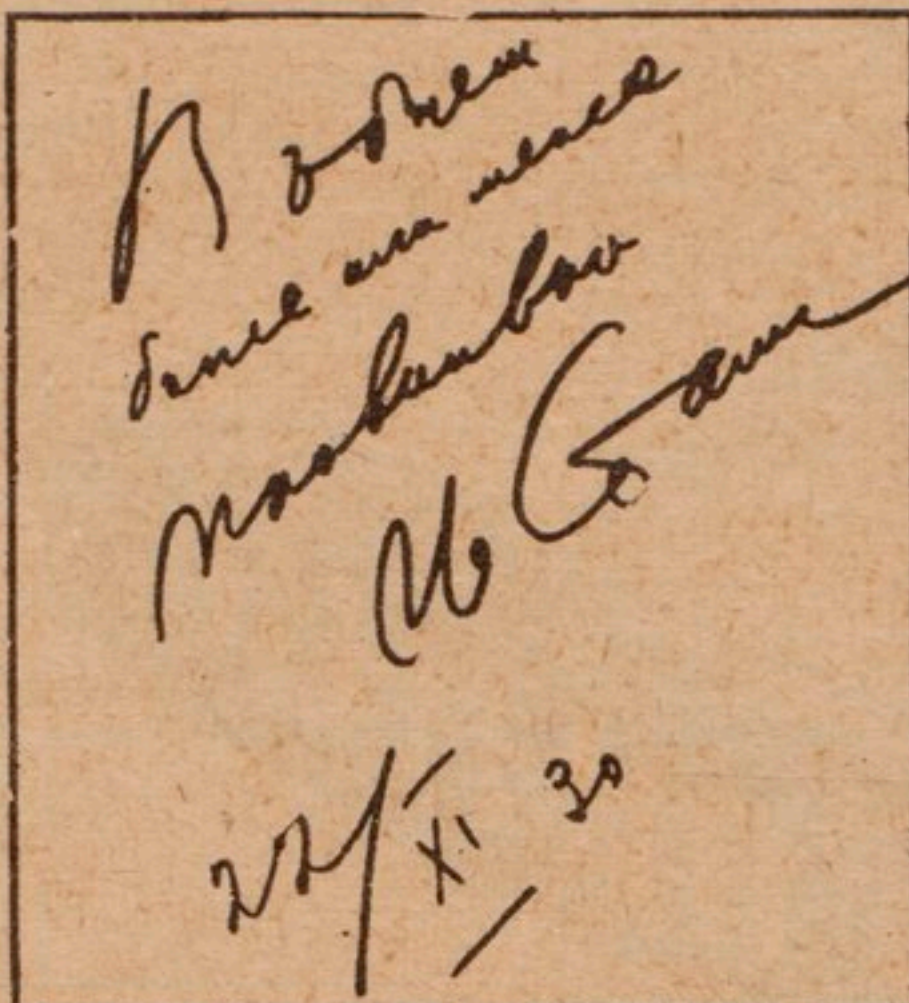 В общем
более или менее
правильно
И Стали
22/XI 30